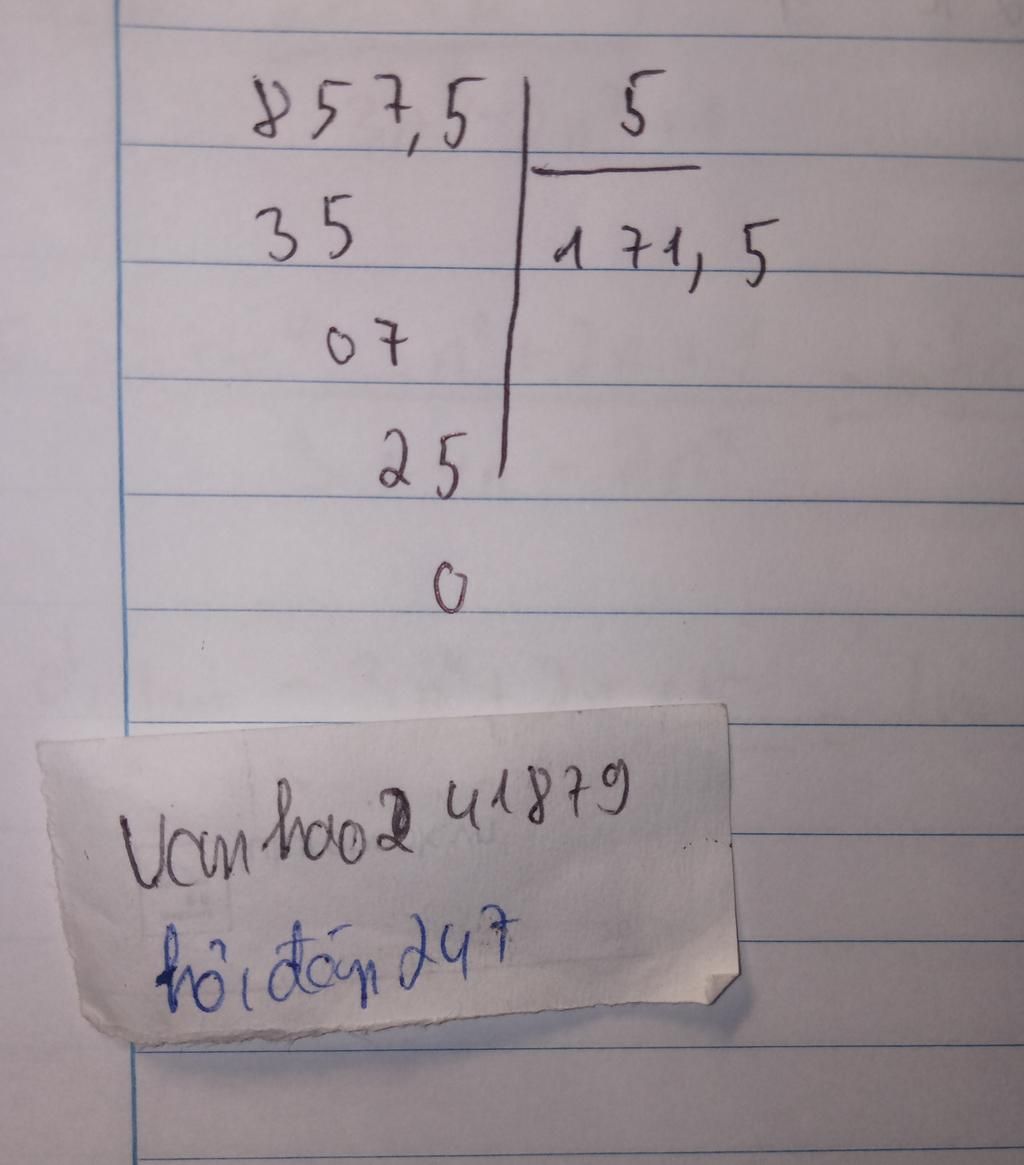 857,5 5
35 171,5
07
25
0
vanhao241879
hỏi đáp 247